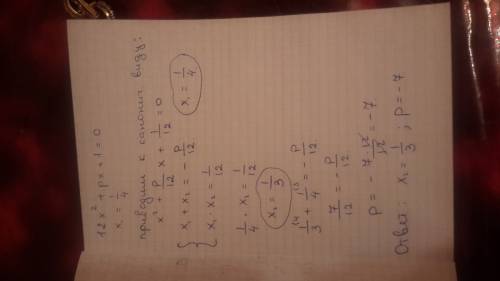 12x² + px + 1 = 0
x₁ = 1/4
приводим к канонич виду:
x² + p/12 x + 1/12 = 0
{ x₁ + x₂ = - p/12
{ x₁ · x₂ = 1/12
x₁ = 1/4
1/4 · x₂ = 1/12
x₂ = 1/3
1/3 + 1/4 = - p/12
7/12 = - p/12
p = - 7·12/12 = -7
Ответ: x₂ = 1/3 ; p = -7